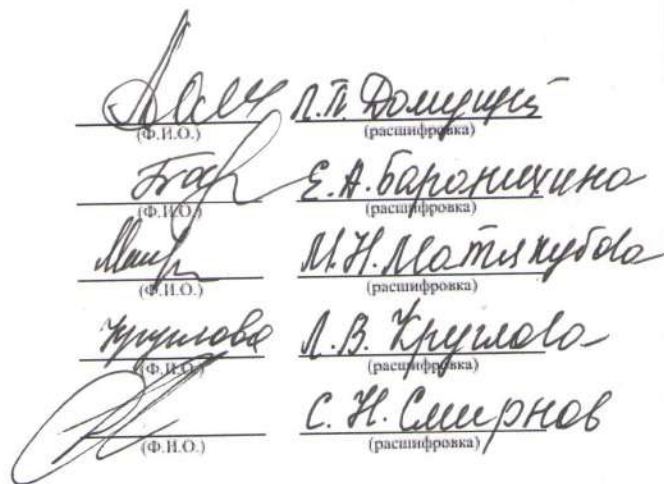 Л.П. Домущей
(Ф.И.О.) (расшифровка)
Е.А. Баронихина
(Ф.И.О.) (расшифровка)
М.Н. Матякубова
(Ф.И.О.) (расшифровка)
Круглова Л.В. Круглова
(Ф.И.О.) (расшифровка)
С.Н. Смирнов
(Ф.И.О.) (расшифровка)